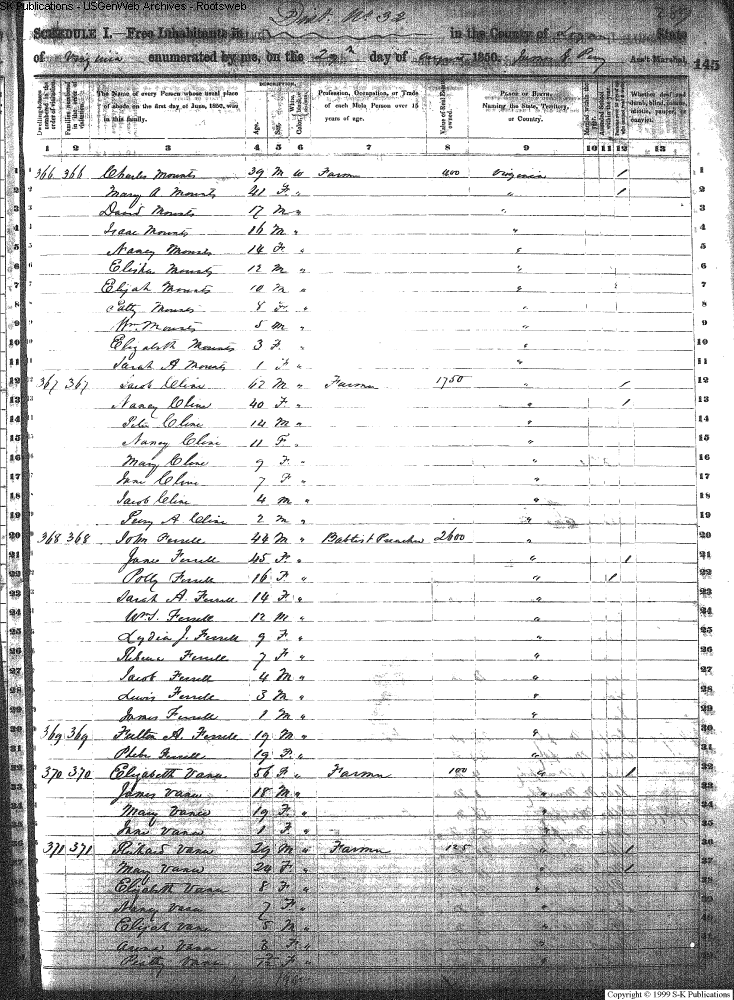 SK Publications - USGenWeb Archives - Rootsweb
Dist. No 32
SCHEDULE I.—Free Inhabitants in in the County of Logan State
of Virginia enumerated by me, on the day of August 1850. Ass't Marshal.
145
Dwelling-houses numbered in the order of visitation.
Families numbered in the order of visitation.
The Name of every Person whose usual place of abode on the first day of June, 1850, was in this family.
DESCRIPTION.
Age.
Sex.
Color,
Profession, Occupation, or Trade of each Male Person over 15 years of age.
Value of Real Estate owned.
PLACE OF BIRTH.
Naming the State, Territory, or Country.
Married within the year.
Whether deaf and dumb, blind, insane, idiotic, pauper, or convict.
1 2 3 4 5 6 7 8 9 10 11 12 13
1 366 366 Charles Mounts 39 M W Farmer 400 Virginia / 1
2 Mary A Mounts 41 F " " / 2
3 David Mounts 17 M " " 3
4 Isaac Mounts 16 M " " 4
5 Nancy Mounts 14 F " " 5
6 Elisha Mounts 12 M " " 6
7 Elijah Mounts 10 M " " 7
8 Patty Mounts 8 F " " 8
9 Wm Mounts 5 M " " 9
10 Elizabeth Mounts 3 F " " 10
11 Sarah A Mounts 1 F " " 11
12 367 367 Jacob Cline 62 M " Farmer 1750 " / 12
13 Nancy Cline 40 F " " / 13
14 Peter Cline 14 M " " 14
15 Nancy Cline 11 F " " 15
16 Mary Cline 9 F " " 16
17 Jane Cline 7 F " " 17
18 Jacob Cline 4 M " " 18
19 Perry A Cline 2 M " " 19
20 368 368 John Ferrell 44 M " Baptist Preacher 2600 " 20
21 Jane Ferrell 45 F " " / 21
22 Polly Ferrell 16 F " " / 22
23 Sarah A. Ferrell 14 F " " 23
24 Wm S. Ferrell 12 M " " 24
25 Lydia J. Ferrell 9 F " " 25
26 Rebecca Ferrell 7 F " " 26
27 Jacob Ferrell 4 M " " 27
28 Lewis Ferrell 3 M " " 28
James Ferrell 1 M " "
369 369 Fulton A. Ferrell 19 M " "
Phebe Ferrell 19 F " "
370 370 Elizabeth Vance 56 F " Farmer 100 " /
James Vance 18 M " "
Mary Vance 19 F " "
Jane Vance 1 F " "
371 371 Richard Vance 29 M " Farmer 125 " /
Mary Vance 24 F " " /
Elizabeth Vance 8 F " "
Nancy Vance 7 F " "
Elijah Vance 5 M " "
Vance 3 F " "
Vance F " "
Copyright © 1999 S-K Publications